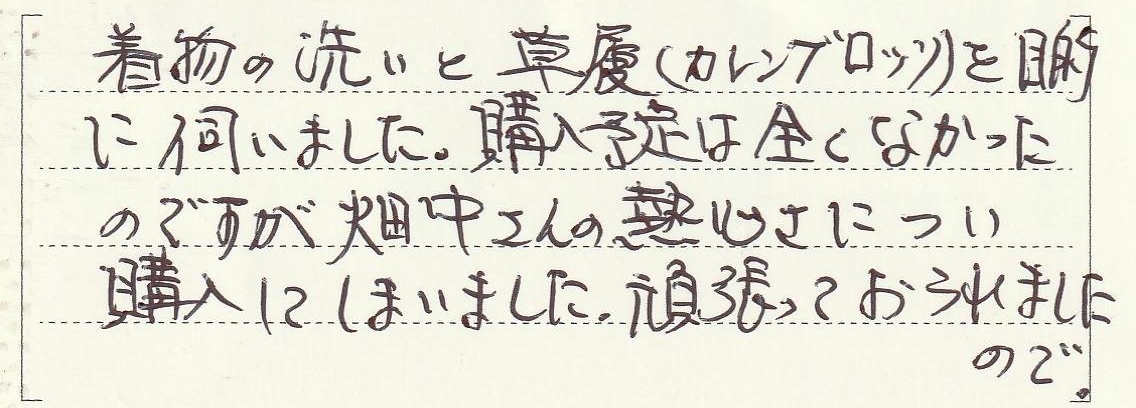 着物の洗いと草履(カレンブロッソ)を目的
に伺いました。購入予定は全くなかった
のですが畑中さんの熱心さについ
購入してしまいました。頑張っておられました
ので。